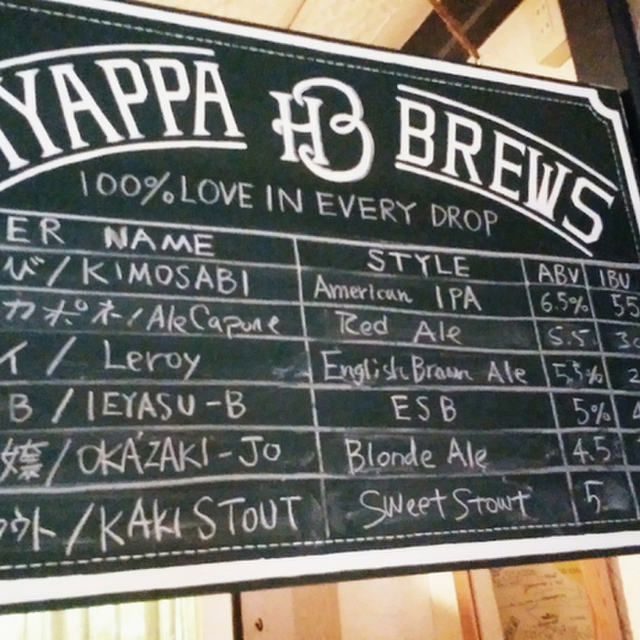 YAPPA HB BREWS
100% LOVE IN EVERY DROP
ER NAME STYLE ABV IBU
び/KIMOSABI American IPA 6.5% 55
カポネ/Ale Capone Red Ale 5.5
イ/Leroy English Brown Ale 5.5%
B/IEYASU-B ESB 5%
嬢/OKAZAKI-JO Blonde Ale 4.5
ウト/KAKI STOUT Sweet Stout 5